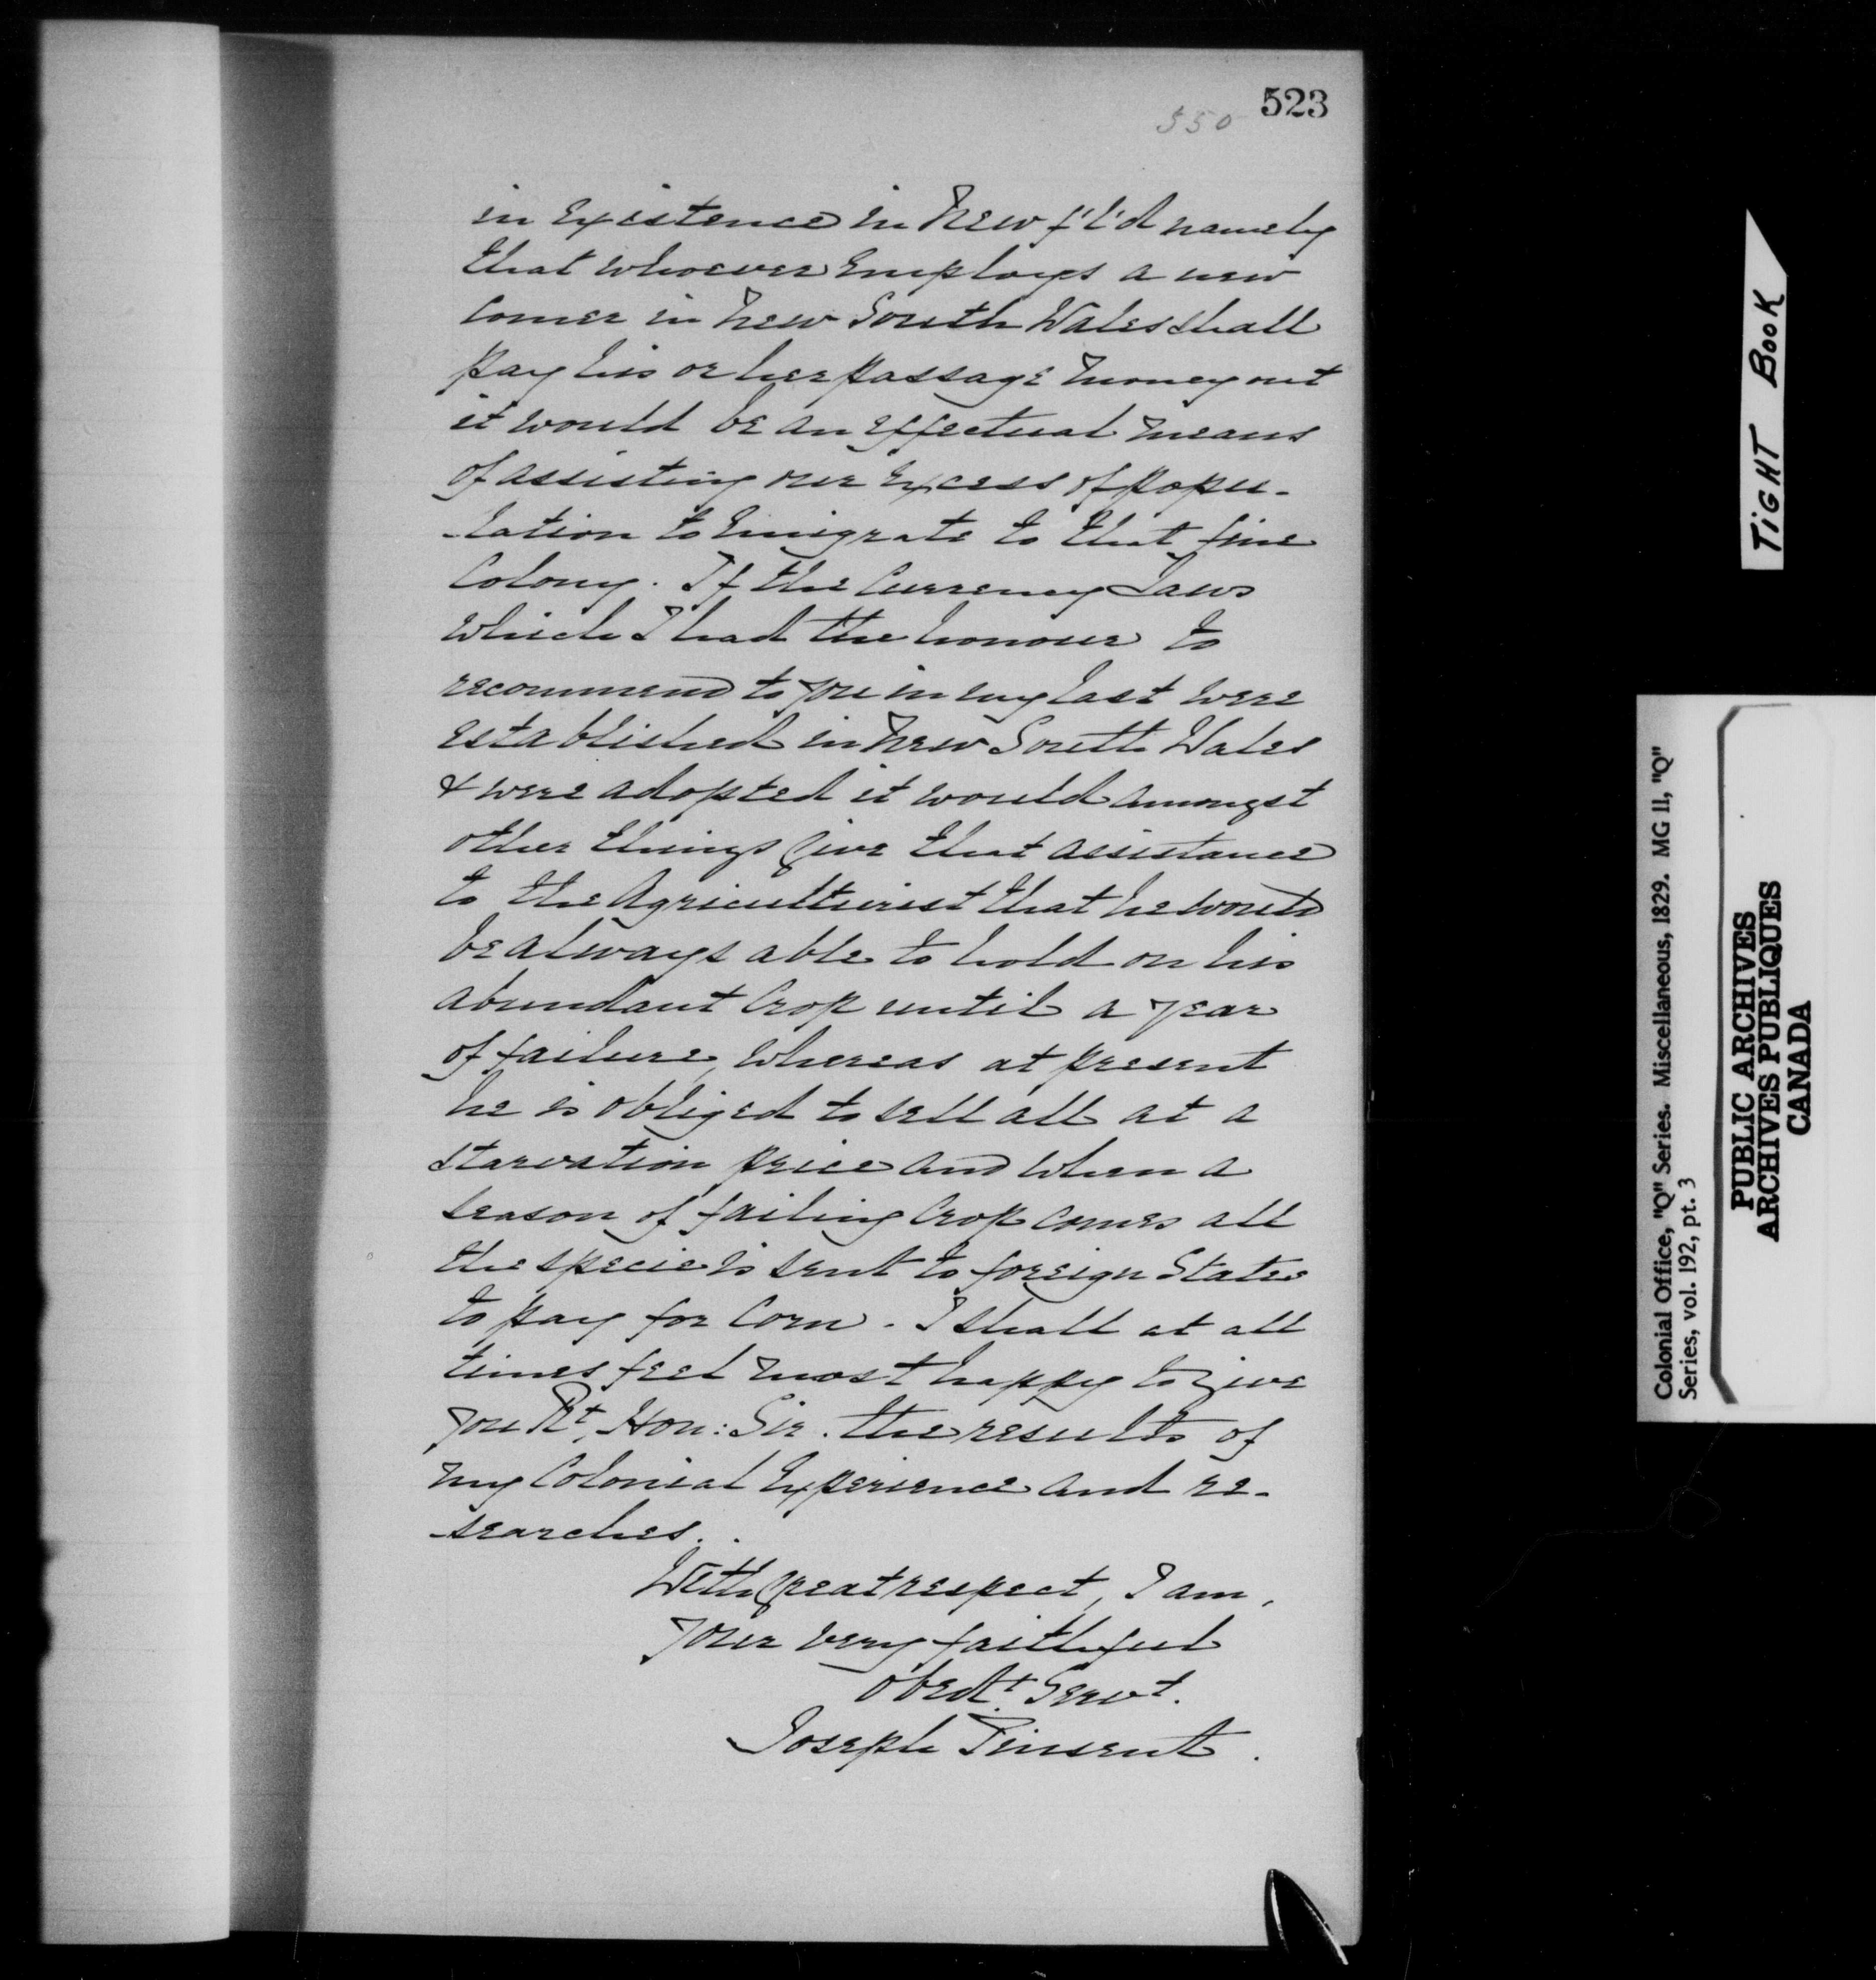 523
550
in Existence in New f'l'd namely
that whoever Employs a new
Comer in New South Wales shall
pay his or her passage money out
it would be an effectual means
of assisting our Excess of popu-
-lation to Emigrate to that fine
Colony. If the Currency Laws
which I had the honour to
recommend to you in my last were
established in New South Wales
& were adopted it would amongst
other things Give that assistance
to the Agriculturist that he would
be always able to hold on his
abundant Crop until a year
of failure, whereas at present
he is obliged to sell all at a
starvation price and when a
season of failing Crop comes all
the specie is sent to foreign States
to pay for Corn. I shall at all
times feel most happy to give
you Rt, Hon: Sir. the results of
my Colonial Experience and re-
-searches.
With Great respect, I am,
your very faithful
obedt Servt.
Joseph Pinsent.
TIGHT BOOK
Colonial Office, "Q" Series. Miscellaneous, 1829. MG 11, "Q"
Series, vol. 192, pt. 3
PUBLIC ARCHIVES
ARCHIVES PUBLIQUES
CANADA